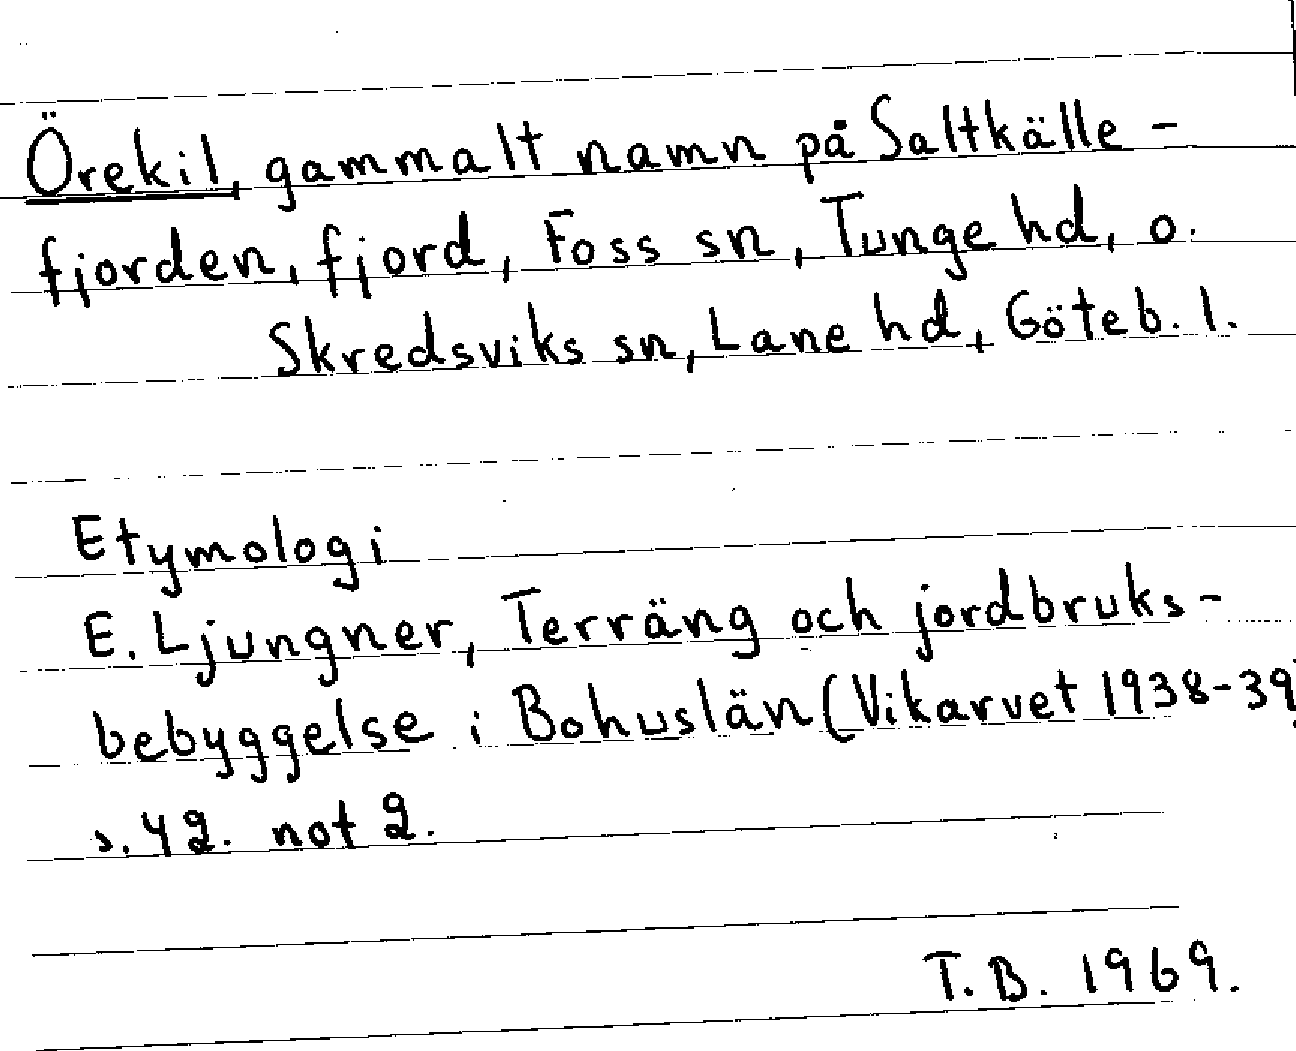 Örekil, gammalt namn på Saltkälle-
fjorden, fjord, Foss sn, Tunge hd, o.
Skredsviks sn, Lane hd, Göteb. l.
Etymologi
E. Ljungner, Terräng och jordbruks-
bebyggelse i Bohuslän (Vikarvet 1938-39)
s. 42. not 2.
T.B. 1969.